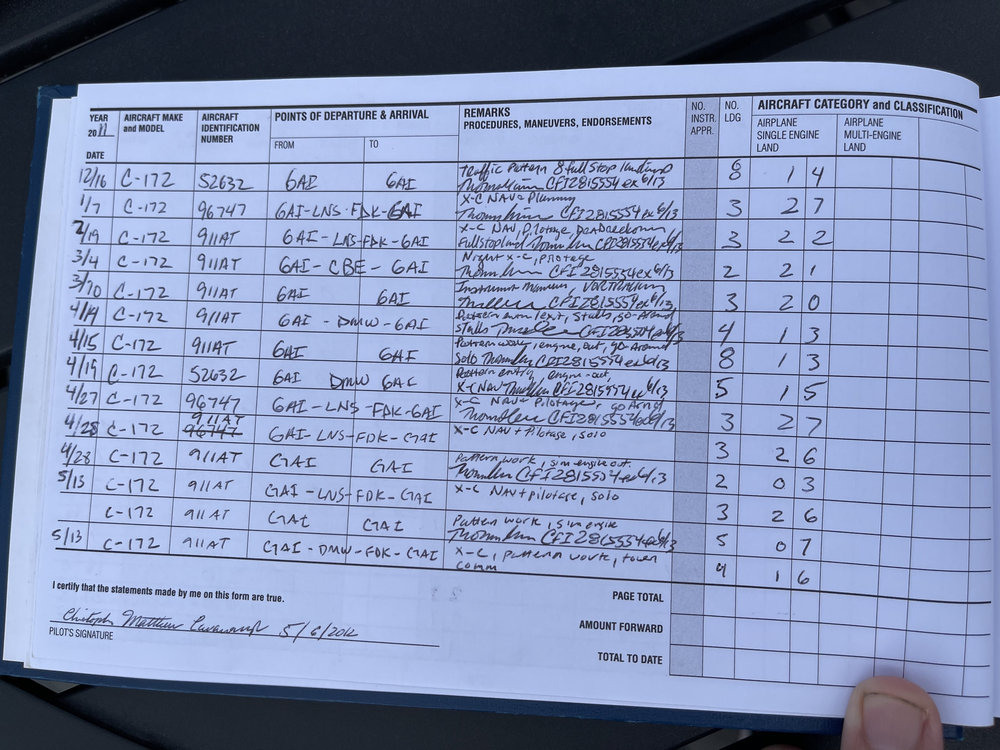 YEAR 2011 AIRCRAFT MAKE and MODEL AIRCRAFT IDENTIFICATION NUMBER POINTS OF DEPARTURE & ARRIVAL REMARKS PROCEDURES, MANEUVERS, ENDORSEMENTS NO. INSTR. APPR. NO. LDG AIRCRAFT CATEGORY and CLASSIFICATION
DATE FROM TO AIRPLANE SINGLE ENGINE LAND AIRPLANE MULTI-ENGINE LAND
12/16 C-172 52632 GAI GAI Traffic Pattern 8 full stop landings 8 1 4
CFI 2815554 ex 6/13
1/7 C-172 96747 GAI-LNS-FDK-GAI X-C NAV - Planning 3 2 7
CFI 2815554 ex 6/13
2/19 C-172 911AT GAI-LNS-FDK-GAI X-C NAV, Pilotage, 3 2 2
Full stop CFI 2815554 ex 6/13
3/4 C-172 911AT GAI-CBE-GAI Night X-C, pilotage 2 2 1
CFI 2815554 ex 6/13
3/10 C-172 911AT GAI GAI Instrument 3 2 0
CFI 2815554 ex 6/13
C-172 911AT GAI-DMW-GAI Pattern Stalls, go-Around 4 1 3
stalls CFI 2815554 ex 6/13
4/15 C-172 911AT GAI GAI Pattern work, engine, out, go-Around 8 1 3
Solo CFI 2815554 ex 6/13
4/19 C-172 52632 GAI DMW GAI Pattern entry, engine-out, 5 1 5
X-C NAV CFI 2815554 ex 6/13
4/27 C-172 96747 GAI-LNS-FDK-GAI X-C NAV + Pilotage, go Arnd 3 2 7
CFI 2815554 ex 6/13
4/28 C-172 911AT 96747 GAI-LNS-FDK-GAI X-C NAV + Pilotage, solo 3 2 6
4/28 C-172 911AT GAI GAI Pattern work, sim engine out. 2 0 3
CFI 2815554 ex 6/13
5/13 C-172 911AT GAI-LNS-FDK-GAI X-C NAV + pilotage, solo 3 2 6
C-172 911AT GAI GAI Pattern work, sim engine 5 0 7
CFI 2815554 ex 6/13
5/13 C-172 911AT GAI-DMW-FDK-GAI X-C, pattern work, tower 4 1 6
comm
I certify that the statements made by me on this form are true. PAGE TOTAL
Christopher Matthew 5/6/2012 AMOUNT FORWARD
PILOT'S SIGNATURE TOTAL TO DATE